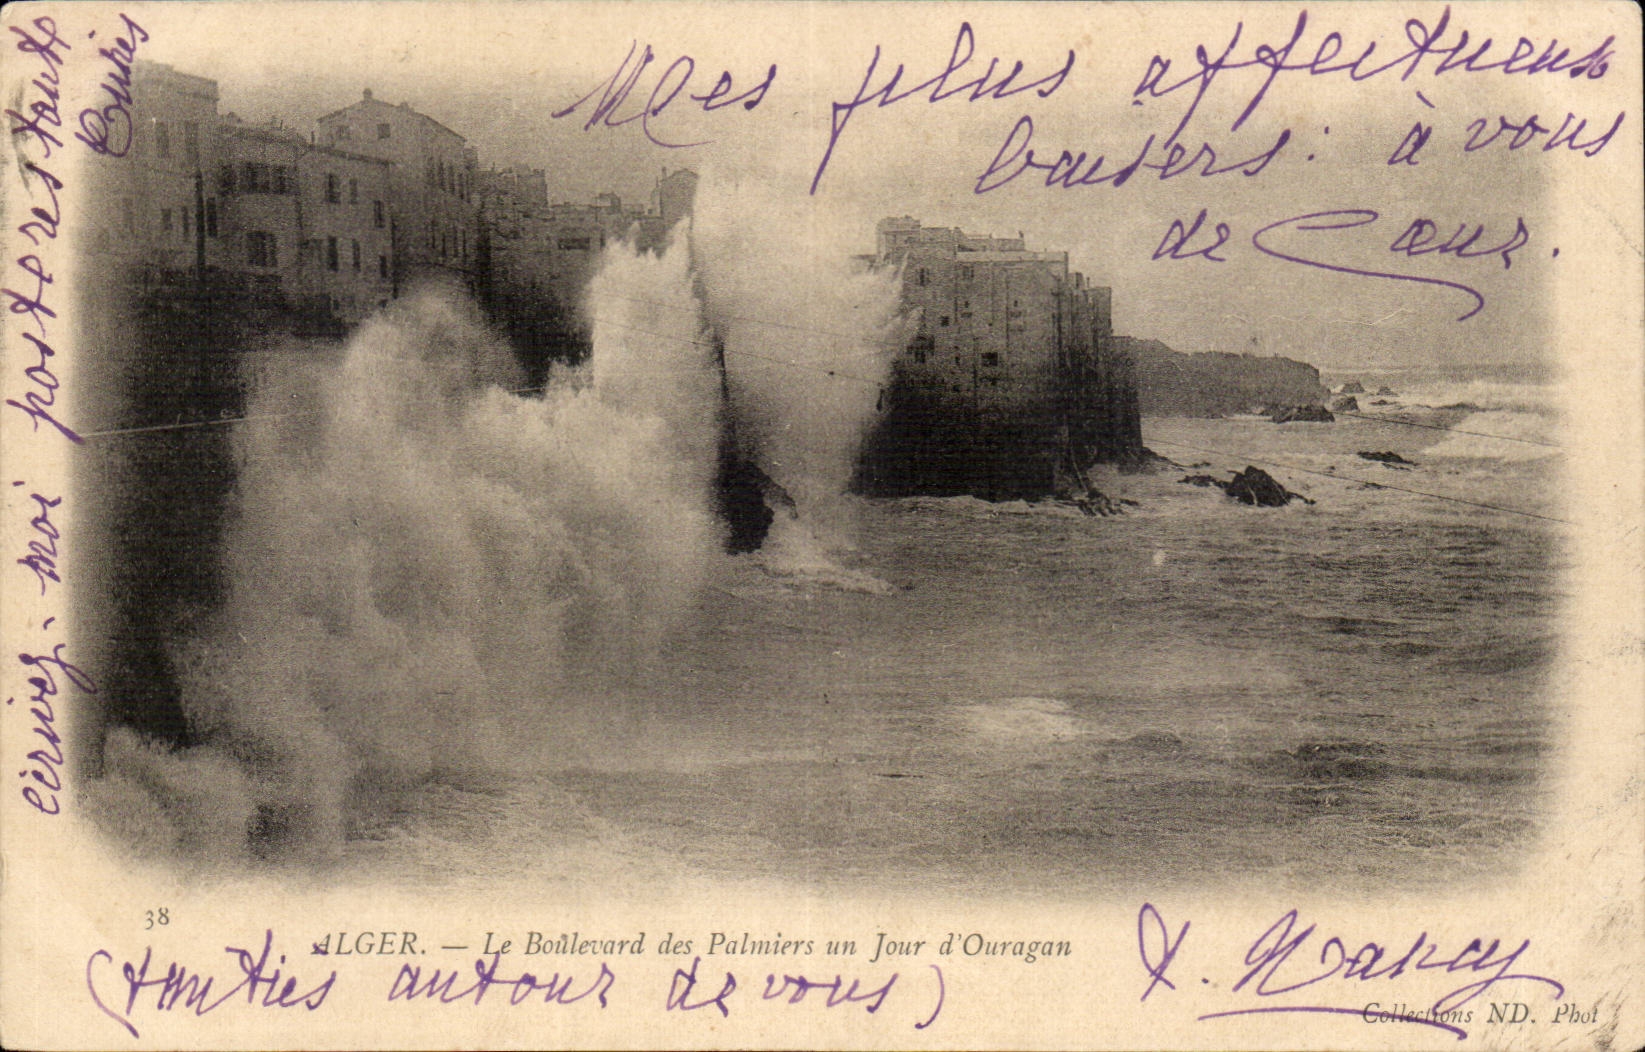 Mes plus affectueux
baisers : à vous
de Cœur.
écrivez-moi poste restante
38
ALGER. — Le Boulevard des Palmiers un Jour d'Ouragan
(amitiés autour de vous)
Collections ND. Phot